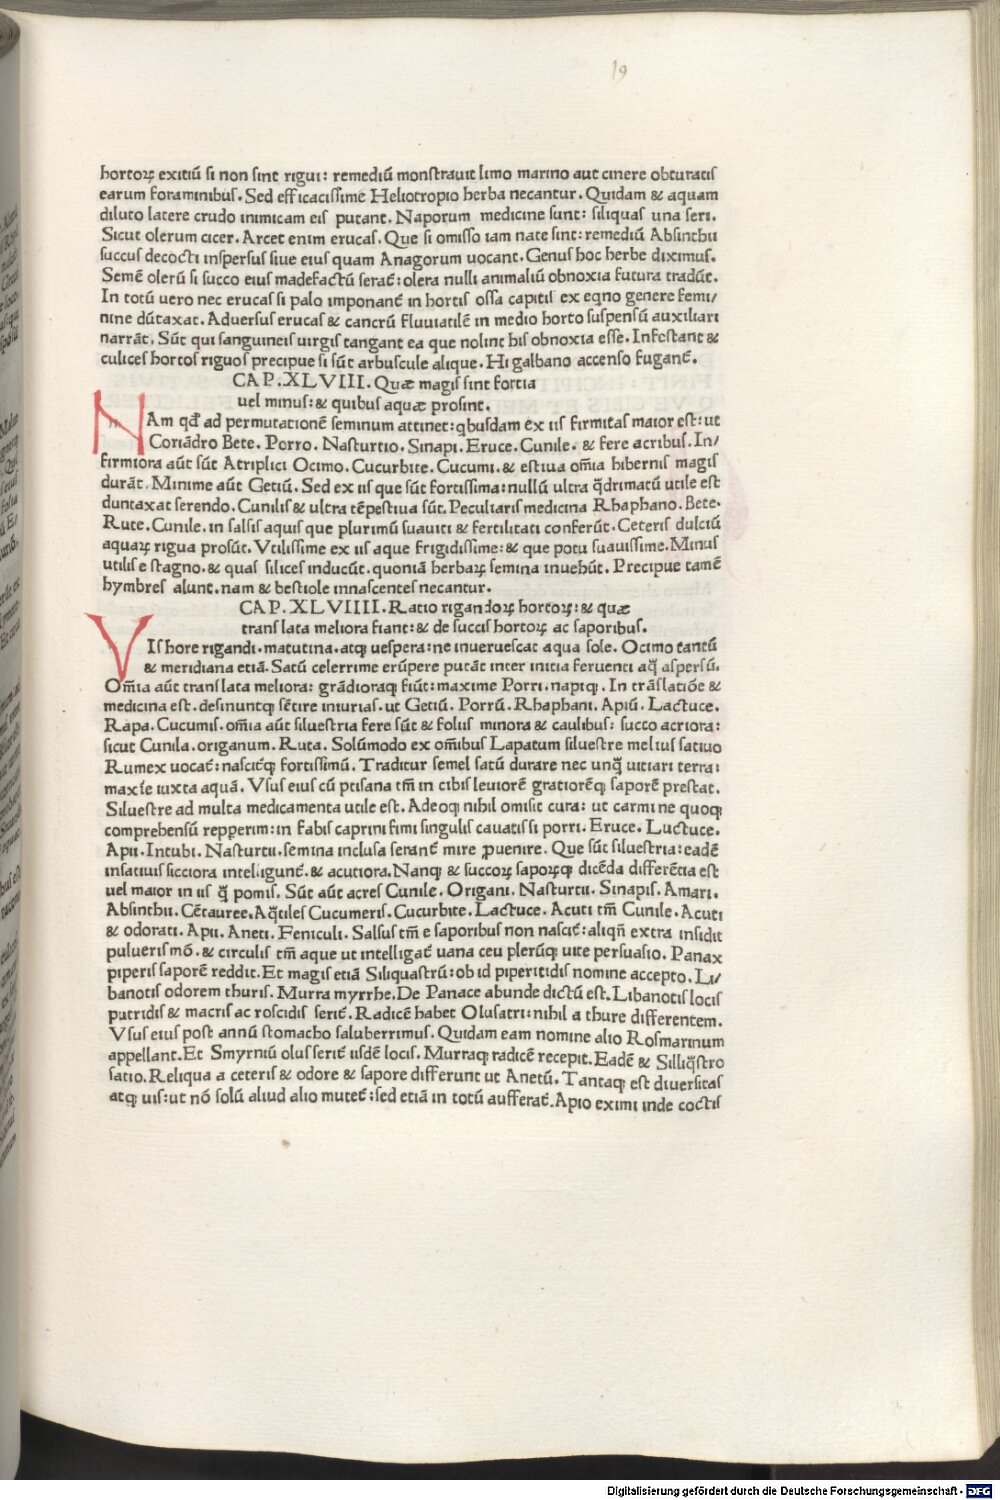 19
hortoꝝ exitiū si non sint rigui: remediū monstrauit limo marino aut cinere obturatis
earum foraminibus. Sed efficacissime Heliotropio herba necantur. Quidam & aquam
diluto latere crudo inimicam eis putant. Naporum medicine sunt: siliquas una seri.
Sicut olerum cicer. Arcet enim erucas. Que si omisso iam nate sint: remediū Absinthii
succus decocti inspersus siue eius quam Anagorum uocant. Genus hoc herbe diximus.
Semē olerū si succo eius madefactū serat̄: olera nulli animaliū obnoxia futura tradūt.
In totū uero nec erucas si palo imponant̄ in hortis ossa capitis ex eqno genere femi/
nine dūtaxat. Aduersus erucas & cancrū fluuiatilē in medio horto suspensū auxiliari
narrāt. Sūt qui sanguineis uirgis tangant ea que nolint his obnoxia esse. Infestant &
culices hortos riguos precipue si sūt arbuscule alique. Hi galbano accenso fugant̄.
CAP. XLVIII. Quæ magis sint fortia
uel minus: & quibus aquæ prosint.
NAm qđ ad permutationē seminum attinet: qbusdam ex iis firmitas maior est: ut
Coriādro Bete. Porro. Nasturtio. Sinapi. Eruce. Cunile. & fere acribus. In/
firmiora aūt sūt Atriplici Ocimo. Cucurbite. Cucumi. & estiua om̄ia hibernis magis
durāt. Minime aūt Getiū. Sed ex iis que sūt fortissima: nullū ultra q̄drimatū utile est
duntaxat serendo. Cunilis & ultra tēpestiua sūt. Peculiaris medicina Rhaphano. Bete.
Rute. Cunile. in salsis aquis que plurimū suauiti & fertilitati conferūt. Ceteris dulciū
aquaꝝ rigua prosūt. Vtilissime ex iis aque frigidissime: & que potu suauissime. Minus
utilis e stagno. & quas silices inducūt. quoniā herbaꝝ semina inuehūt. Precipue tamē
hymbres alunt. nam & bestiole innascentes necantur.
CAP. XLVIIII. Ratio rigandoꝝ hortoꝝ: & quæ
translata meliora fiant: & de succis hortoꝝ ac saporibus.
VIs hore rigandi. matutina. atqꝫ uespera: ne inueruescat aqua sole. Ocimo tantū
& meridiana etiā. Satū celerrime erūpere putāt inter initia feruenti aq̄ aspersū.
Om̄ia aūt translata meliora: grādioraqꝫ fiūt: maxime Porri. napiqꝫ. In trāslatiōe &
medicina est. desinuntqꝫ sētire iniurias. ut Getiū. Porrū. Rhaphani. Apiū. Lactuce.
Rapa. Cucumis. om̄ia aūt siluestria fere sūt & foliis minora & caulibus: succo acriora:
sicut Cunila. origanum. Ruta. Solūmodo ex om̄ibus Lapatum siluestre melius satiuo
Rumex uocat̄: nascit̄qꝫ fortissimū. Traditur semel satū durare nec unq̄ uitiari terra:
maxīe iuxta aquā. Vsus eius cū ptisana tm̄ in cibis leuiorē gratiorēqꝫ saporē prestat.
Siluestre ad multa medicamenta utile est. Adeoqꝫ nihil omisit cura: ut carmine quoqꝫ
comprehensū repperim: in fabis caprini fimi singulis cauatis si porri. Eruce. Luctuce.
Apii. Intubi. Nasturtii. semina inclusa serant̄ mire ꝓuenire. Que sūt siluestria: eadē
insatiuis sicciora intelligunt̄. & acutiora. Nanqꝫ & succoꝝ saporꝝqꝫ dicēda differētia est
uel maior in iis q̄ pomis. Sūt aūt acres Cunile. Origani. Nasturtii. Sinapis. Amari.
Absinthii. Cētauree. Aq̄tiles Cucumeris. Cucurbite. Lactuce. Acuti tm̄ Cunile. Acuti
& odorati. Apii. Aneti. Feniculi. Salsus tm̄ e saporibus non nascit̄: aliqn̄ extra insidit
pulueris mō. & circulis tm̄ aque ut intelligat̄ uana ceu plerūqꝫ uite persuasio. Panax
piperis saporē reddit. Et magis etiā Siliquastrū: ob id piperitidis nomine accepto. Li/
banotis odorem thuris. Murra myrrhe. De Panace abunde dictū est. Libanotis locis
putridis & macris ac roscidis serit̄. Radicē habet Olusatri: nihil a thure differentem.
Vsus eius post annū stomacho saluberrimus. Quidam eam nomine alio Rosmarinum
appellant. Et Smyrniū olus serit̄ iisdē locis. Murraqꝫ radicē recepit. Eadē & Silliq̄stro
satio. Reliqua a ceteris & odore & sapore differunt ut Anetū. Tantaqꝫ est diuersitas
atqꝫ uis: ut nō solū aliud alio mutet̄: sed etiā in totū aufferat̄. Apio eximi inde coctis
Digitalisierung gefördert durch die Deutsche Forschungsgemeinschaft - DFG